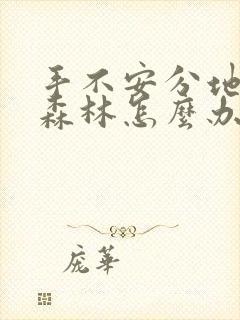 手不安分地
森林怎麼办
庞華